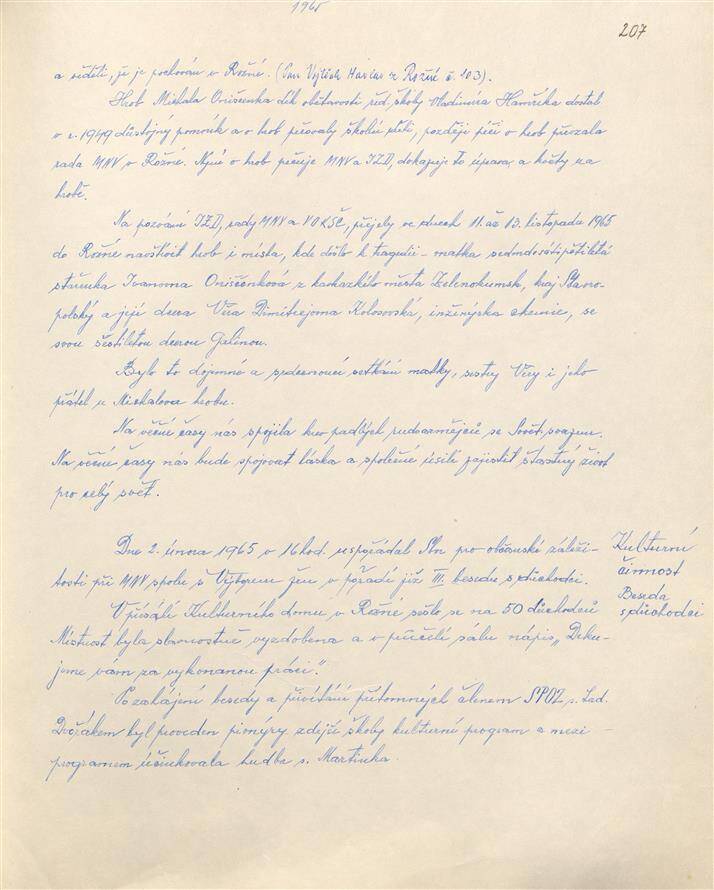 1965
207
a věděti, že je pochován v Rožné. (Pan Vojtěch Havlas z Rožné č. 103).
Hrob Michala Oniščenka dík obětavosti řed. školy Vladimíra Hamříka dostal
v r. 1949 důstojný pomník a o hrob pečovaly školní děti, později péči o hrob převzala
rada MNV v Rožné. Nyní o hrob pečuje MNV a JZD, dokazuje to úprava a květy na
hrobě.
Na pozvání JZD, rady MNV a VO KSČ, přijely ve dnech 11. až 13. listopadu 1965
do Rožné navštívit hrob i místa, kde došlo k tragedii - matka sedmdesátipětiletá
stařenka Ivanovna Oniščenková z kavkazkého města Zelenokumsk, kraj Stavro-
polský a její dcera Věra Dimitrijevna Kolosovská, inženýrka chemie, se
svou šestiletou dcerou Galinou.
Bylo to dojemné a srdcervoucí setkání matky, sestry Věry i jeho
přátel u Michalova hrobu.
Na věčné časy nás spojila krev padlých rudoarmějců se Sovět. svazem.
Na věčné časy nás bude spojovat láska a společné úsilí zajistit šťastný život
pro celý svět.
Dne 2. února 1965 v 16 hod. uspořádal Sbor pro občanské záleži-
tosti při MNV spolu s Výborem žen v pořadí již III. besedu s důchodci.
Kulturní
činnost
Beseda
s důchodci
V přísálí Kulturního domu v Rožné sešlo se na 50 důchodců
Místnost byla slavnostně vyzdobena a v průčelí sálu nápis „Děku-
jeme vám za vykonanou práci".
Po zahájení besedy a přivítání přítomných členem SPOZ s. Lad.
Dvořákem byl proveden pionýry zdejší školy kulturní program a mezi-
programem účinkovala hudba s. Martinka.